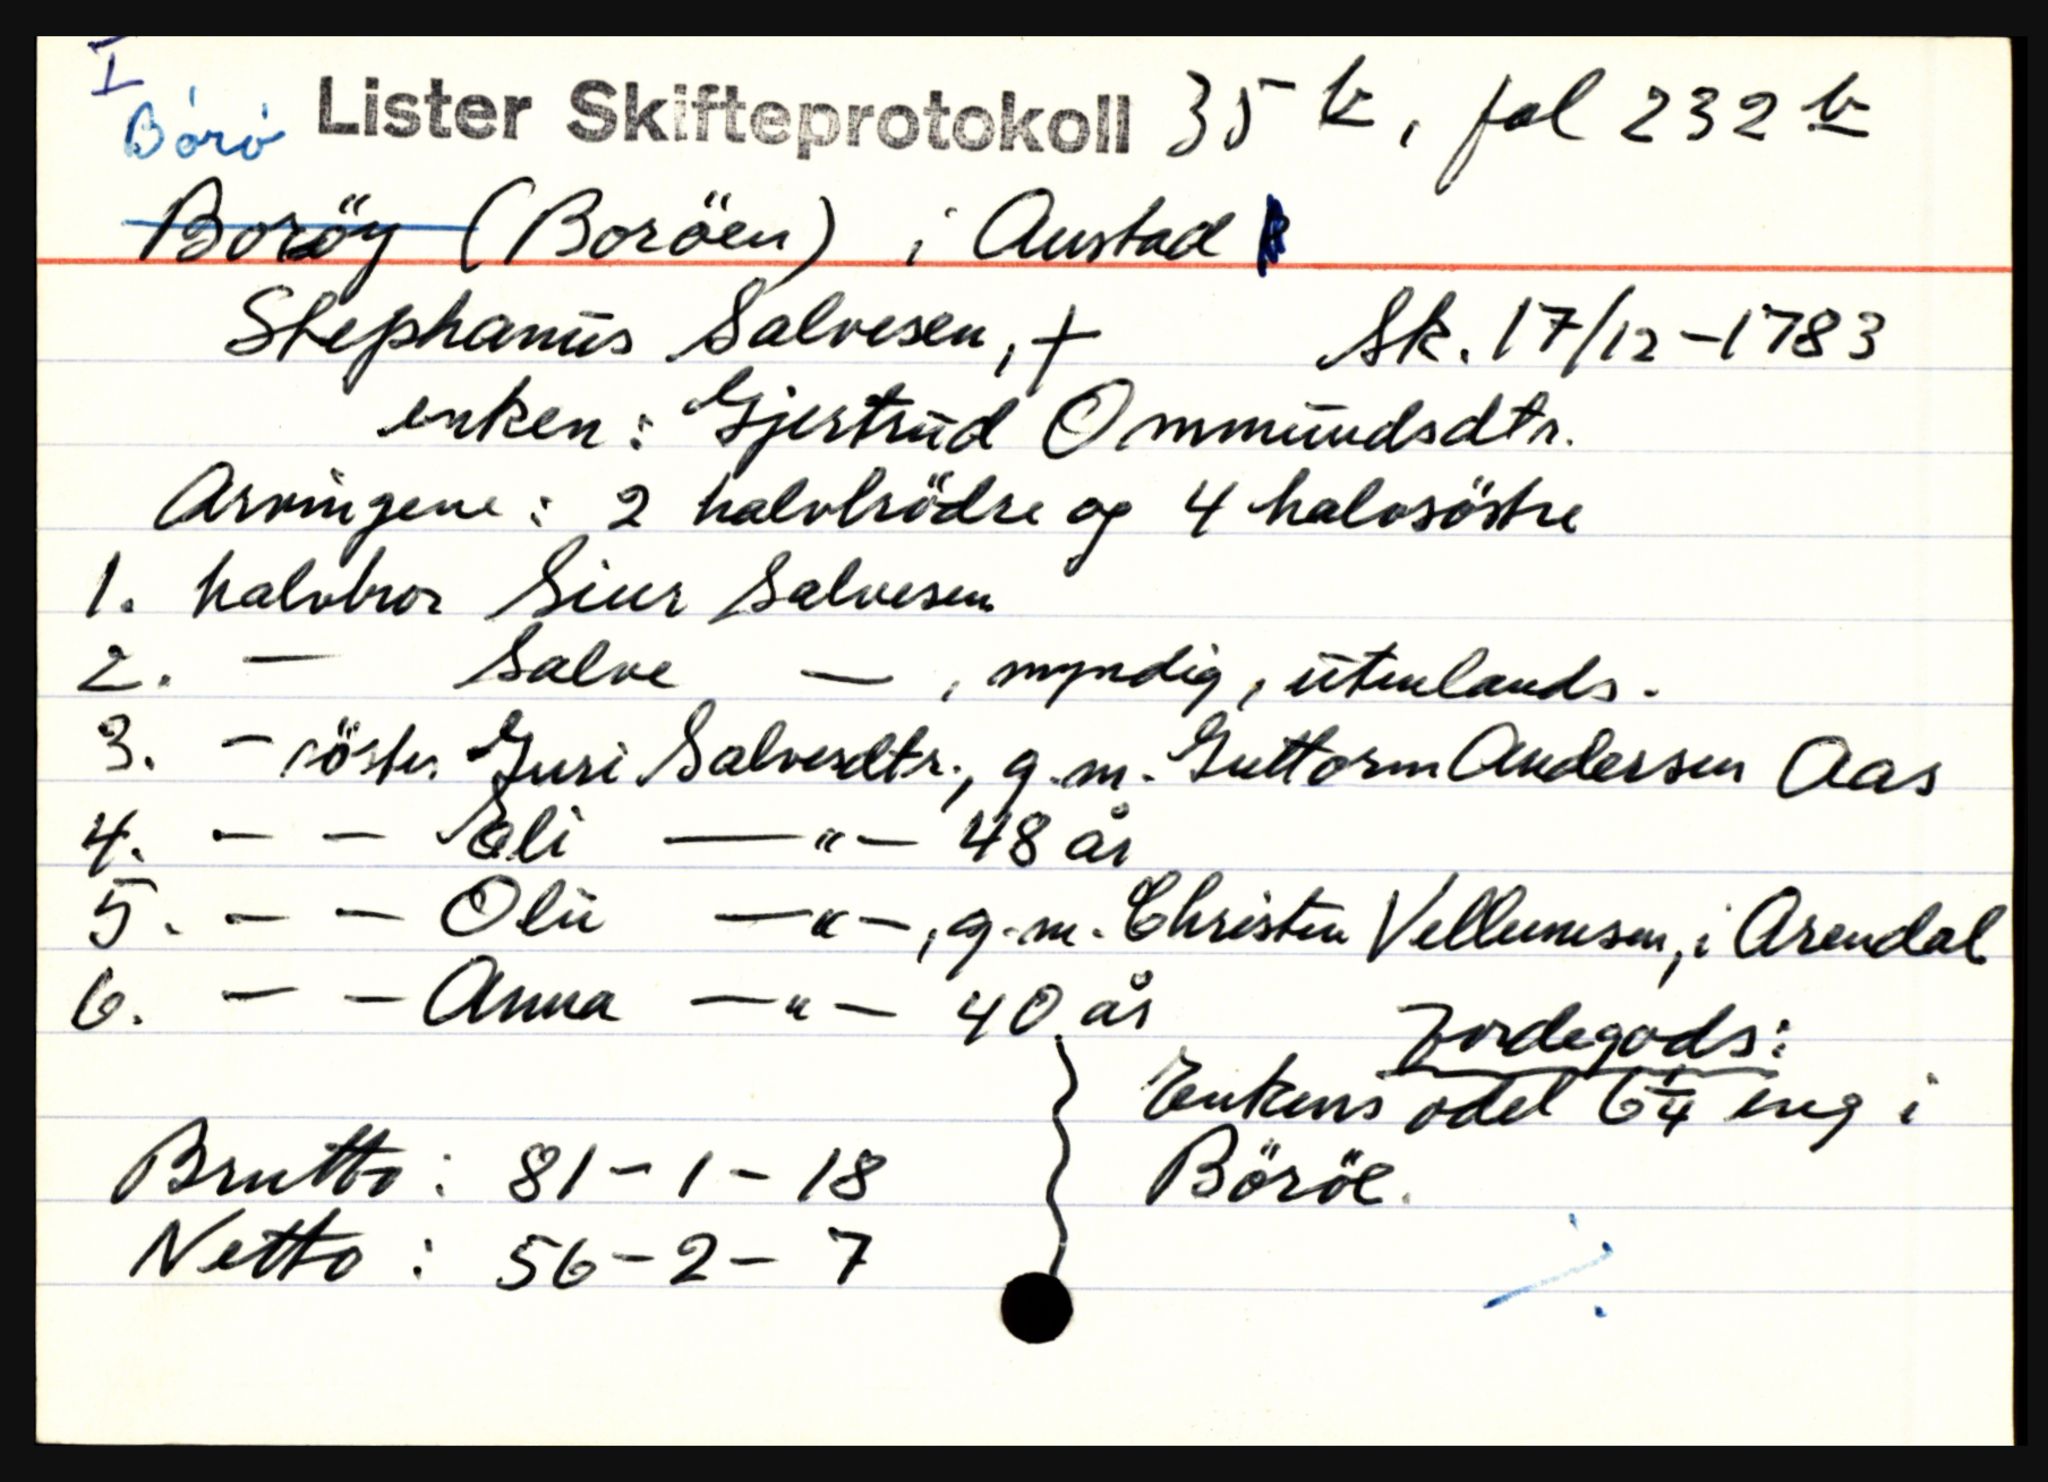 I
Börö Lister Skifteprotokoll 35 b, fol 232 b
Boröy (Boröen) i Austad
Stephanus Salvesen, + Sk. 17/12-1783
enken: Gjertrud Ommundsdtr.
Arvingene: 2 halvbrödre og 4 halvsöstre
1. halvbror Siur Salvesen
2. — Salve — , myndig, utenlands.
3. — söster Guri Salvesdtr., g.m. Guttorm Andersen Aas
4. — — Eli —"— 48 år
5. — — Olu —"—, g.m. Christen Vellumsen, i Arendal
6. — — Anna —"— 40 år
Jordegods:
Enkens odel 6 1/4 eng i
Böröe.
Brutto: 81-1-18
Netto: 56-2-7